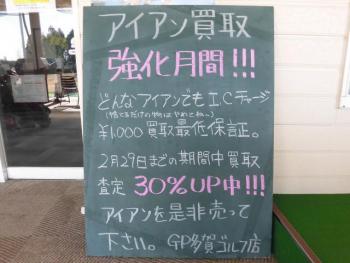 アイアン買取
強化月間!!!
どんなアイアンでもI.Cチャージ
(捨てるだけの物はやめてネッ)
¥1,000買取最低保証。
2月29日までの期間中買取
査定 30%UP中!!!
アイアンを是非売って
下さい。 GP多賀ゴルフ店